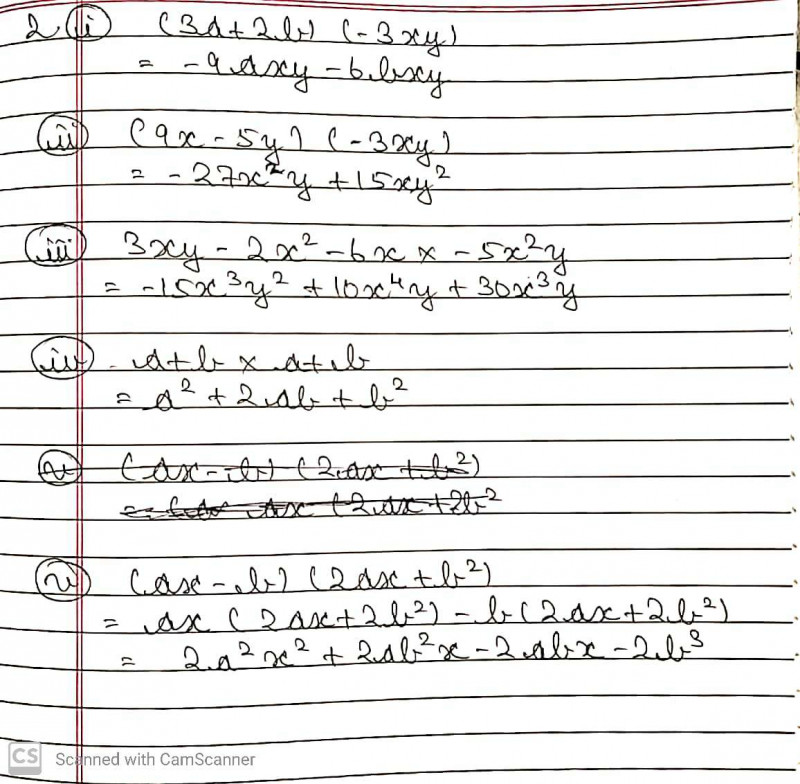 2 (i) (3a+2b) (-3xy)
= -9axy - 6bxy
(ii) (9x - 5y) (-3xy)
= -27x²y + 15xy²
(iii) 3xy - 2x² - 6x × -5x²y
= -15x³y² + 10x⁴y + 30x³y
(iv) a+b × a+b
= a² + 2ab + b²
(v) (ax - b) (2ax + b²)
ax (2ax + 2b²
(v) (ax - b) (2ax + b²)
= ax (2ax + 2b²) - b (2ax + 2b²)
= 2a²x² + 2ab²x - 2abx - 2b³
CS Scanned with CamScanner